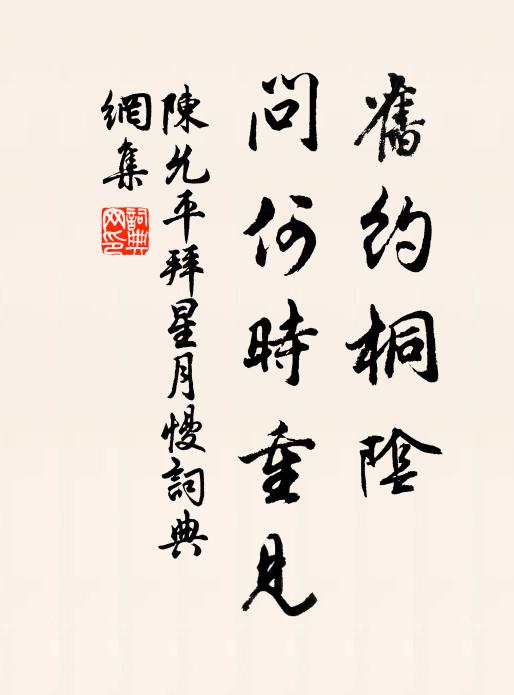 舊約桐陰
問何時重見
陳允平拜星月慢詞典
網集
詞典網印